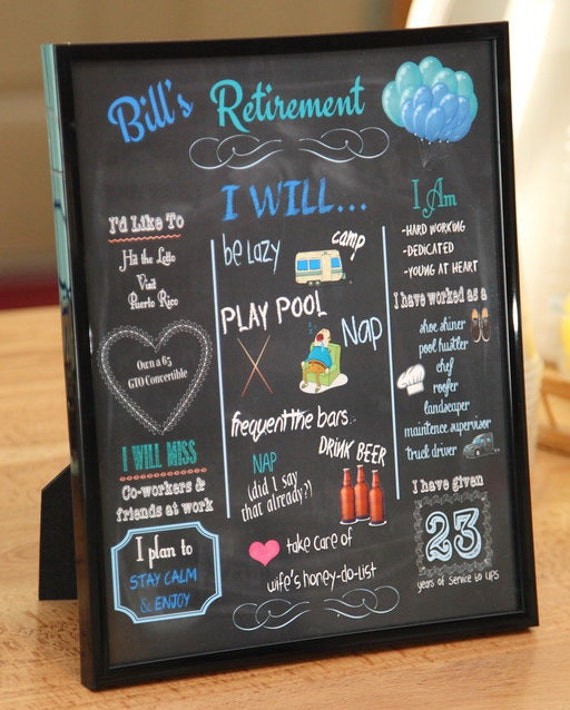 Bill's Retirement
I'd Like To
Hit the Lotto
Visit
Puerto Rico
Own a 65
GTO Convertible
I WILL MISS
Co-workers &
friends at work
I plan to
STAY CALM
& ENJOY
I WILL...
be LAZY
camp
PLAY POOL
Nap
frequent the bars..
DRINK BEER
NAP
(did I say
that already?)
take care of
wife's honey-do-list
I Am
-HARD WORKING
-DEDICATED
-YOUNG AT HEART
I have worked as a
shoe shiner
pool hustler
chef
roofer
landscaper
maintence supervisor
truck driver
I have given
23
years of service to UPS